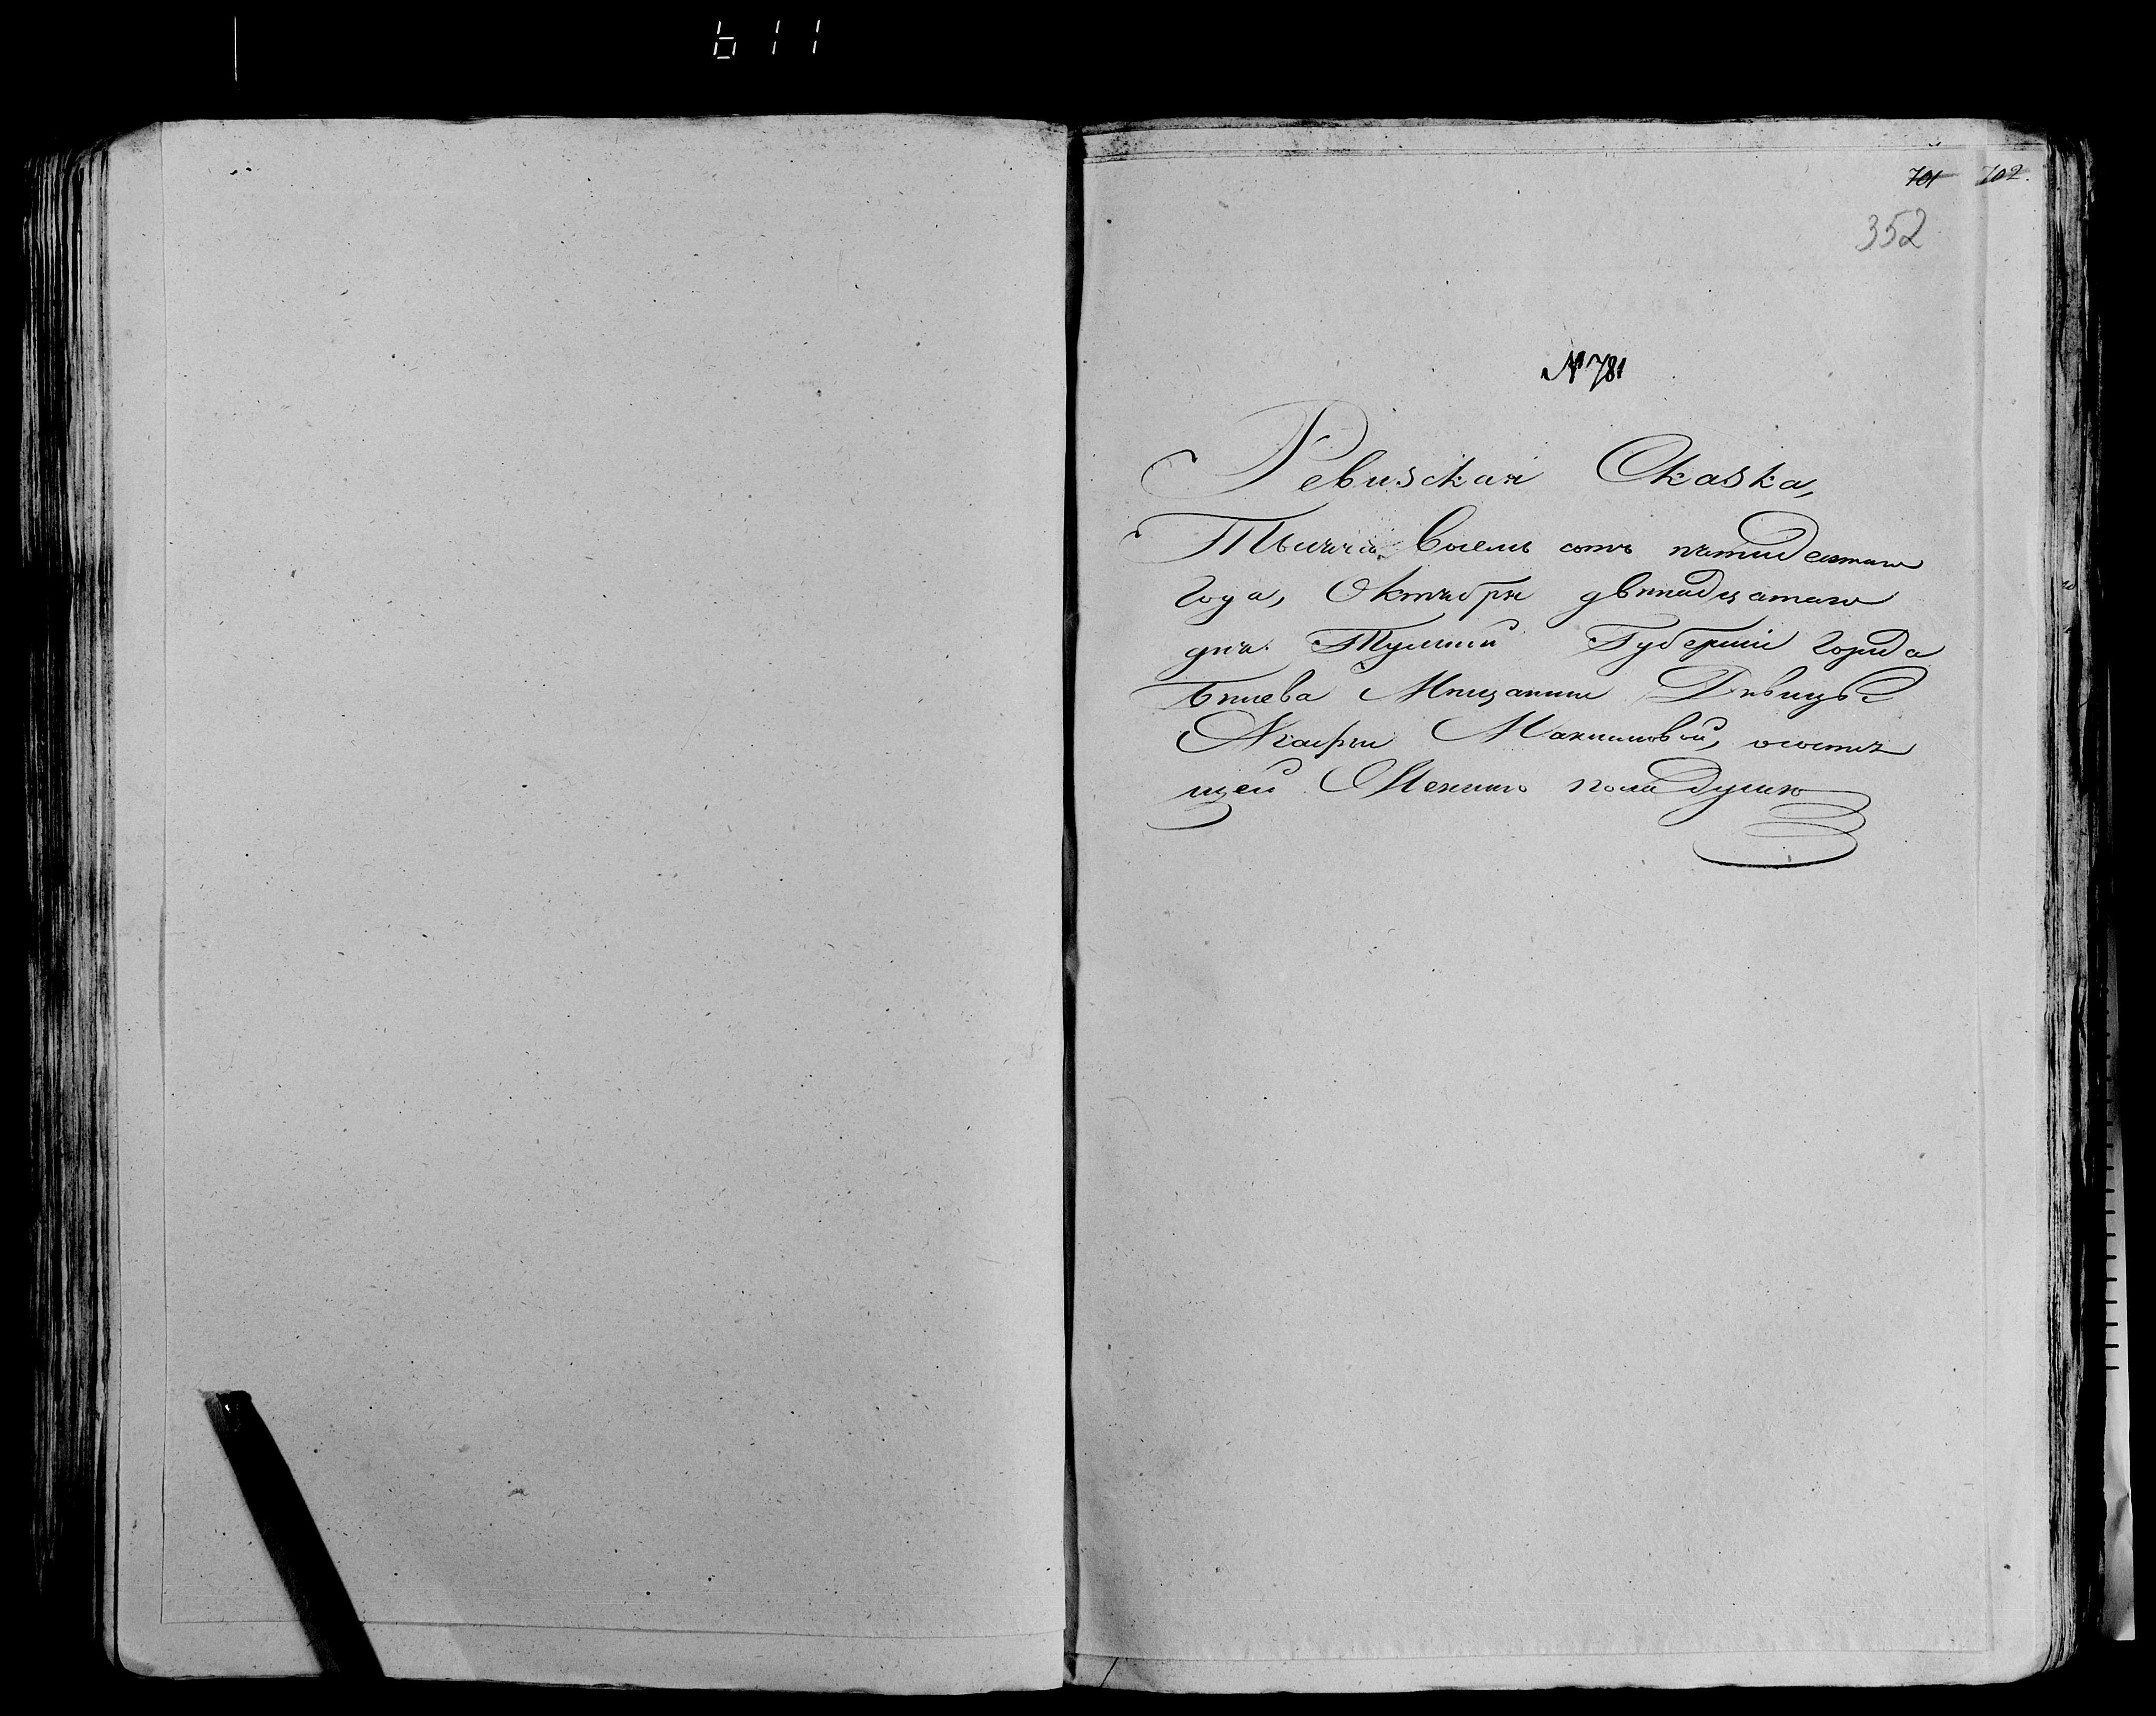 611
701 702.
352
№ 781
Ревизская Сказка,
Тысяча восемь сотъ пятидесятаго
года, Октября двенадцатаго
дня Тульской Губернiи города
Белева Мещанки Девицы
Агафьи Максимовой, состоя
щей Женска пола душъ